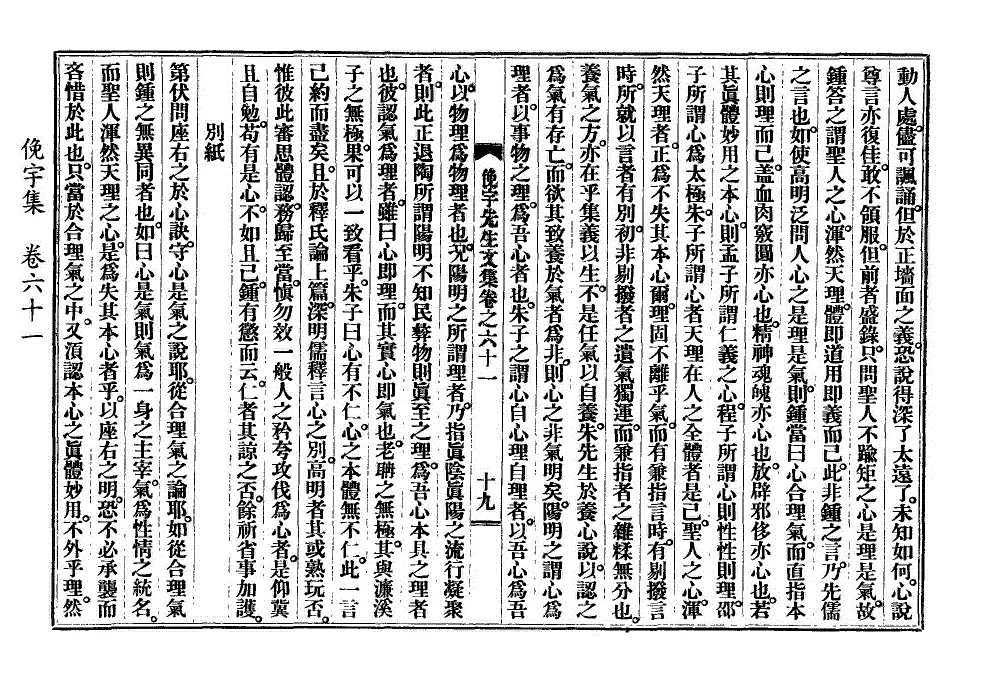 動人處。儘可諷誦。但於正墻面之義。恐說得深了太遠了。未知如何。心說
尊言亦復佳。敢不領服。但前者盛錄。只問聖人不踰矩之心是理是氣。故
鍾答之謂聖人之心。渾然天理。體即道用即義而已。此非鍾之言。乃先儒
之言也。如使高明泛問人心之是理是氣。則鍾當曰心合理氣。而直指本
心則理而已。盖血肉竅圓亦心也。精神魂魄亦心也。放辟邪侈亦心也。若
其眞體妙用之本心。則孟子所謂仁義之心。程子所謂心則性性則理。邵
子所謂心爲太極。朱子所謂心者天理在人之全體者是已。聖人之心。渾
然天理者。正爲不失其本心爾。理固不離乎氣。而有兼指言時。有剔撥言
時。所就以言者有別。初非剔撥者之遺氣獨運。而兼指者之雜糅無分也。
養氣之方。亦在乎集義以生。不是任氣以自養。朱先生於養心說。以認之
爲氣有存亡。而欲其致養於氣者爲非。則心之非氣明矣。陽明之謂心爲
理者。以事物之理。爲吾心者也。朱子之謂心自心理自理者。以吾心爲吾
俛宇先生文集卷之六十一
十九
心。以物理爲物理者也。况陽明之所謂理者。乃指眞陰眞陽之流行凝聚
者。則此正退陶所謂陽明不知民彝物則眞至之理。爲吾心本具之理者
也。彼認氣爲理者。雖曰心卽理。而其實心卽氣也。老聃之無極。其與濂溪
子之無極。果可以一致看乎。朱子曰心有不仁。心之本體無不仁。此一言
已約而盡矣。且於釋氏論上篇。深明儒釋言心之別。高明者其或熟玩否。
惟彼此審思體認。務歸至當。愼勿效一般人之矜夸攻伐爲心者。是仰冀
且自勉。苟有是心。不如且已。鍾有懲而云。仁者其諒之否。餘祈省事加護。
別紙
第伏問座右之於心。訣守心是氣之說耶。從合理氣之論耶。如從合理氣
則鍾之無異同者也。如曰心是氣則氣爲一身之主宰。氣爲性情之統名。
而聖人渾然天理之心。是爲失其本心者乎。以座右之明。恐不必承襲而
吝惜於此也。只當於合理氣之中。又須認本心之眞體妙用。不外乎理。然
俛宇集 卷六十一